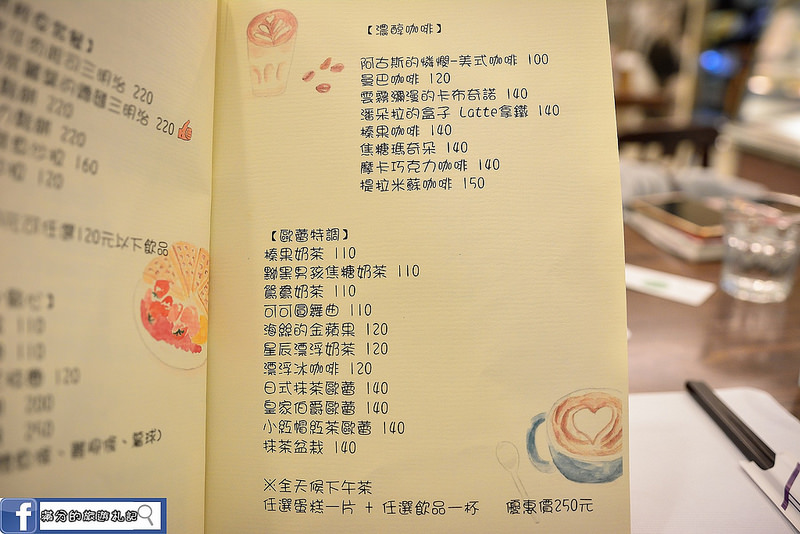 三明治 220
三明治 220
220
160
120
120元以下飲品
110
110
120
200
250
【濃醇咖啡】
阿古斯的憐憫-美式咖啡 100
曼巴咖啡 120
雲霧瀰漫的卡布奇諾 140
潘朵拉的盒子 Latte拿鐵 140
榛果咖啡 140
焦糖瑪奇朵 140
摩卡巧克力咖啡 140
提拉米蘇咖啡 150
【歐蕾特調】
榛果奶茶 110
黝黑男孩焦糖奶茶 110
鴛鴦奶茶 110
可可圓舞曲 110
海絲的金蘋果 120
星辰漂浮奶茶 120
漂浮冰咖啡 120
日式抹茶歐蕾 140
皇家伯爵歐蕾 140
小紅帽紅茶歐蕾 140
抹茶盆栽 140
※全天候下午茶
任選蛋糕一片 + 任選飲品一杯 優惠價250元
滿分的旅遊札記